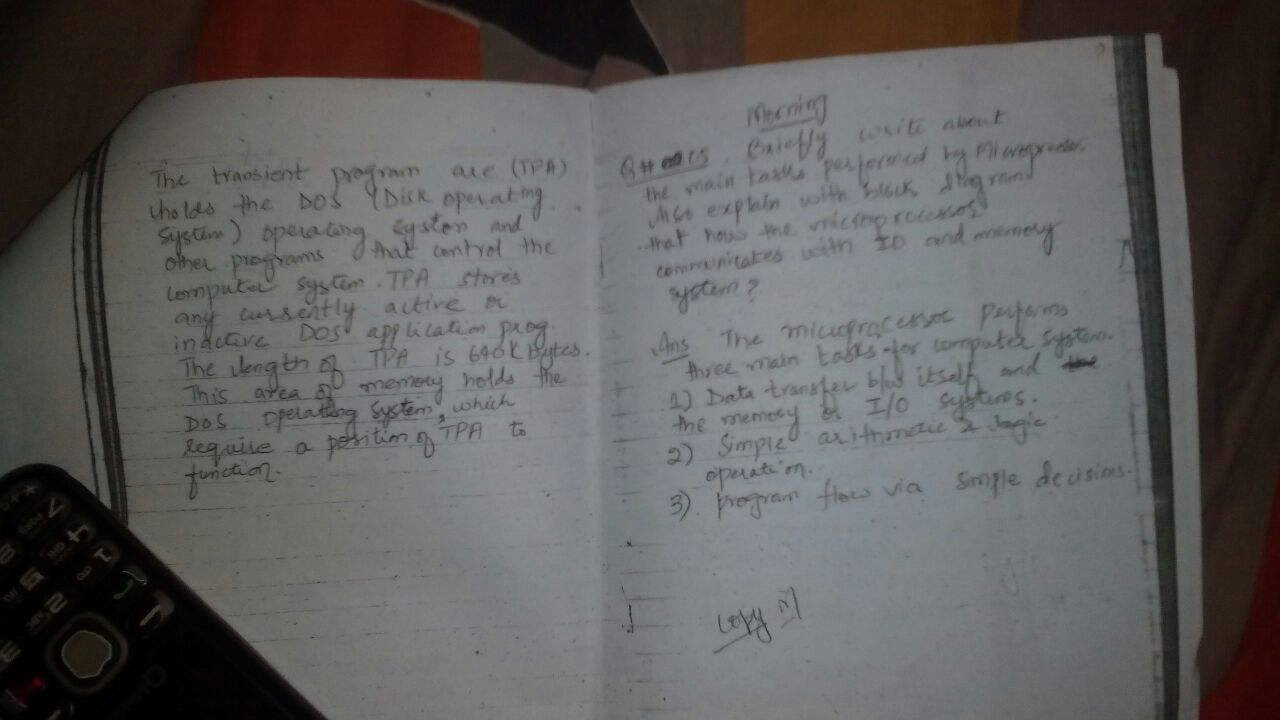 The transient program are (TPA)
holds the DOS (Disk operating
System) operating system and
other programs that control the
computer system. TPA stores
any currently active or
inactive DOS application prog.
The length of TPA is 640K Bytes.
This area of memory holds the
DOS operating system, which
require a position of TPA to
function.
Morning
Q# 05 Briefly write about
the main tasks performed by Microprocessor.
Also explain with block diagram
that how the microprocessor
communicates with IO and memory
system?
Ans The microprocessor performs
three main tasks for computer system.
1) Data transfer b/w itself and
the memory or I/O systems.
2) Simple arithmetic & logic
operation.
3) program flow via simple decisions.
copy